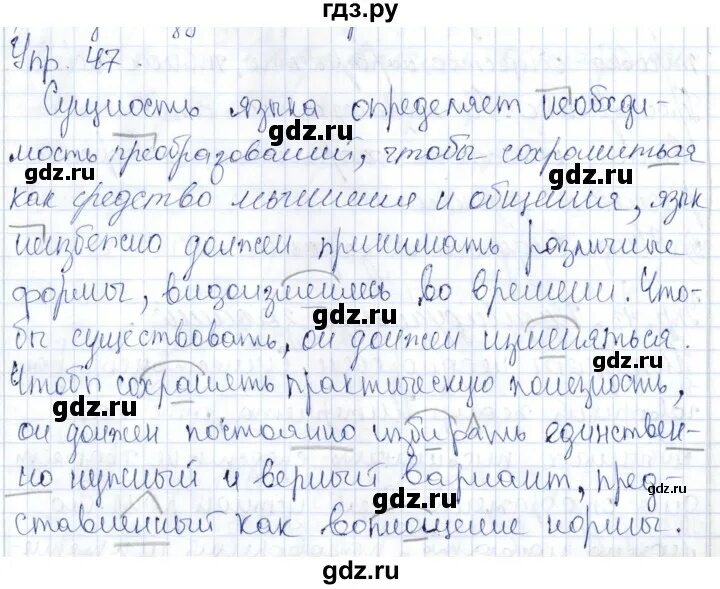 гдз.ру
Упр. 47.
Сущность языка определяет необходи-
gdz.ru
мость преобразований, чтобы сохраниться
gdz.ru
gdz.ru
как средство мышления и общения, язык
неизбежно должен принимать различные
формы, видоизменяясь во времени. Что-
gdz.ru
бы существовать, он должен изменяться.
gdz.ru
Чтобы сохранять практическую полезность,
gdz.ru
он должен постоянно избирать единствен-
но нужный и верный вариант, пред-
gdz.ru
gdz.ru
ставленный как воплощение нормы.
gdz.ru